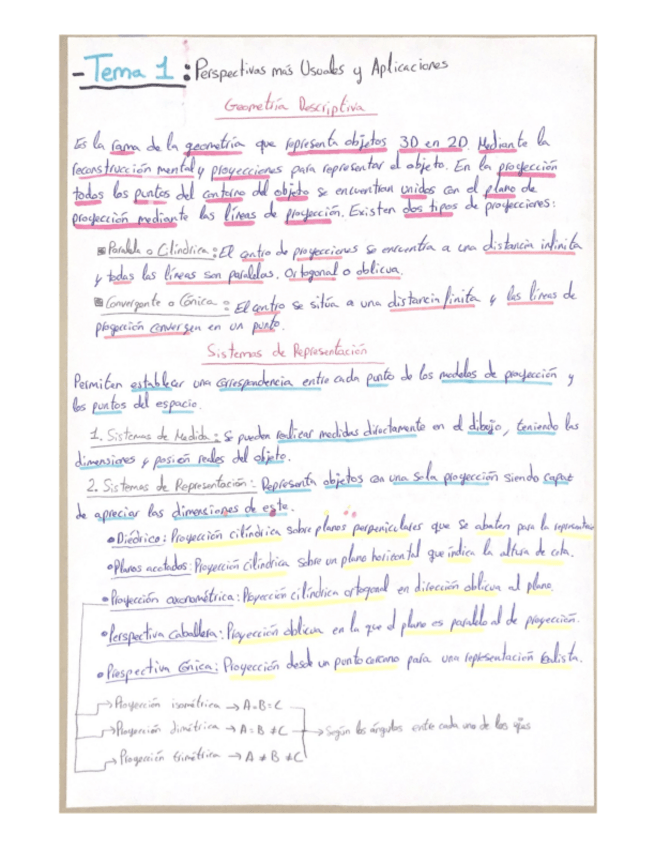 - Tema 1: Perspectivas más Usuales y Aplicaciones
Geometría Descriptiva
Es la rama de la geometría que representa objetos 3D en 2D. Mediante la
reconstrucción mental y proyecciones para representar el objeto. En la proyección
todos los puntos del contorno del objeto se encuentran unidos con el plano de
proyección mediante las líneas de proyección. Existen dos tipos de proyecciones:
Paralela o Cilíndrica: El centro de proyecciones se encuentra a una distancia infinita
y todas las líneas son paralelas. Ortogonal o oblicua.
Convergente o Cónica: El centro se sitúa a una distancia finita y las líneas de
proyección convergen en un punto.
Sistemas de Representación
Permiten establecer una correspondencia entre cada punto de los modelos de proyección y
los puntos del espacio.
1. Sistemas de Medida: Se pueden realizar medidas directamente en el dibujo, teniendo las
dimensiones y posición reales del objeto.
2. Sistemas de Representación: Representa objetos con una sola proyección siendo capaz
de apreciar las dimensiones de este.
• Diédrico: Proyección cilíndrica sobre planos perpendiculares que se abaten para la
• Planos acotados: Proyección cilíndrica sobre un plano horizontal que indica la altura de cota.
• Proyección axonométrica: Proyección cilíndrica ortogonal en dirección oblicua al plano.
• Perspectiva Caballera: Proyección oblicua en la que el plano es paralelo al de proyección.
• Prespectiva Cónica: Proyección desde un punto cercano para una representación realista.
→ Proyección isométrica → A=B=C
→ Proyección dimétrica → A=B≠C → Según los ángulos entre cada uno de los ejes
→ Proyección trimétrica → A≠B≠C